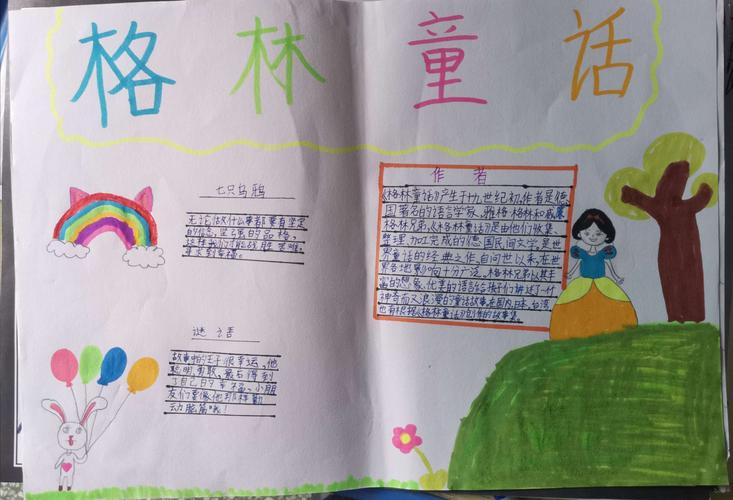 格林童话
七只乌鸦
无论做什么事都要有坚定
的信念，坚强的品格，
这样我们才能战胜困难，
得到幸福。
谜语
故事中的王子很幸运，他
聪明勇敢，最后得到
了自己的幸福。小朋
友们要像他那样勤
动脑筋哦！
作者
《格林童话》产生于十九世纪初，作者是德
国著名的语言学家，雅格·格林和威廉
格林兄弟。《格林童话》是由他们收集、
整理、加工完成的德国民间文学，是世
界童话的经典之作，自问世以来，在世
界各地影响十分广泛。格林兄弟以其丰
富的想象、优美的语言给孩子们讲述了一个个
神奇而又浪漫的童话故事。在国内，日本，台湾
也有根据《格林童话》创作的故事集。